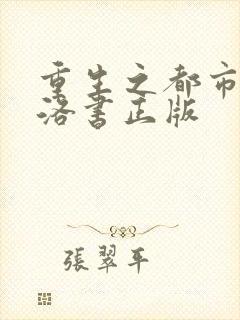 重生之都市
洛書正版
張翠平